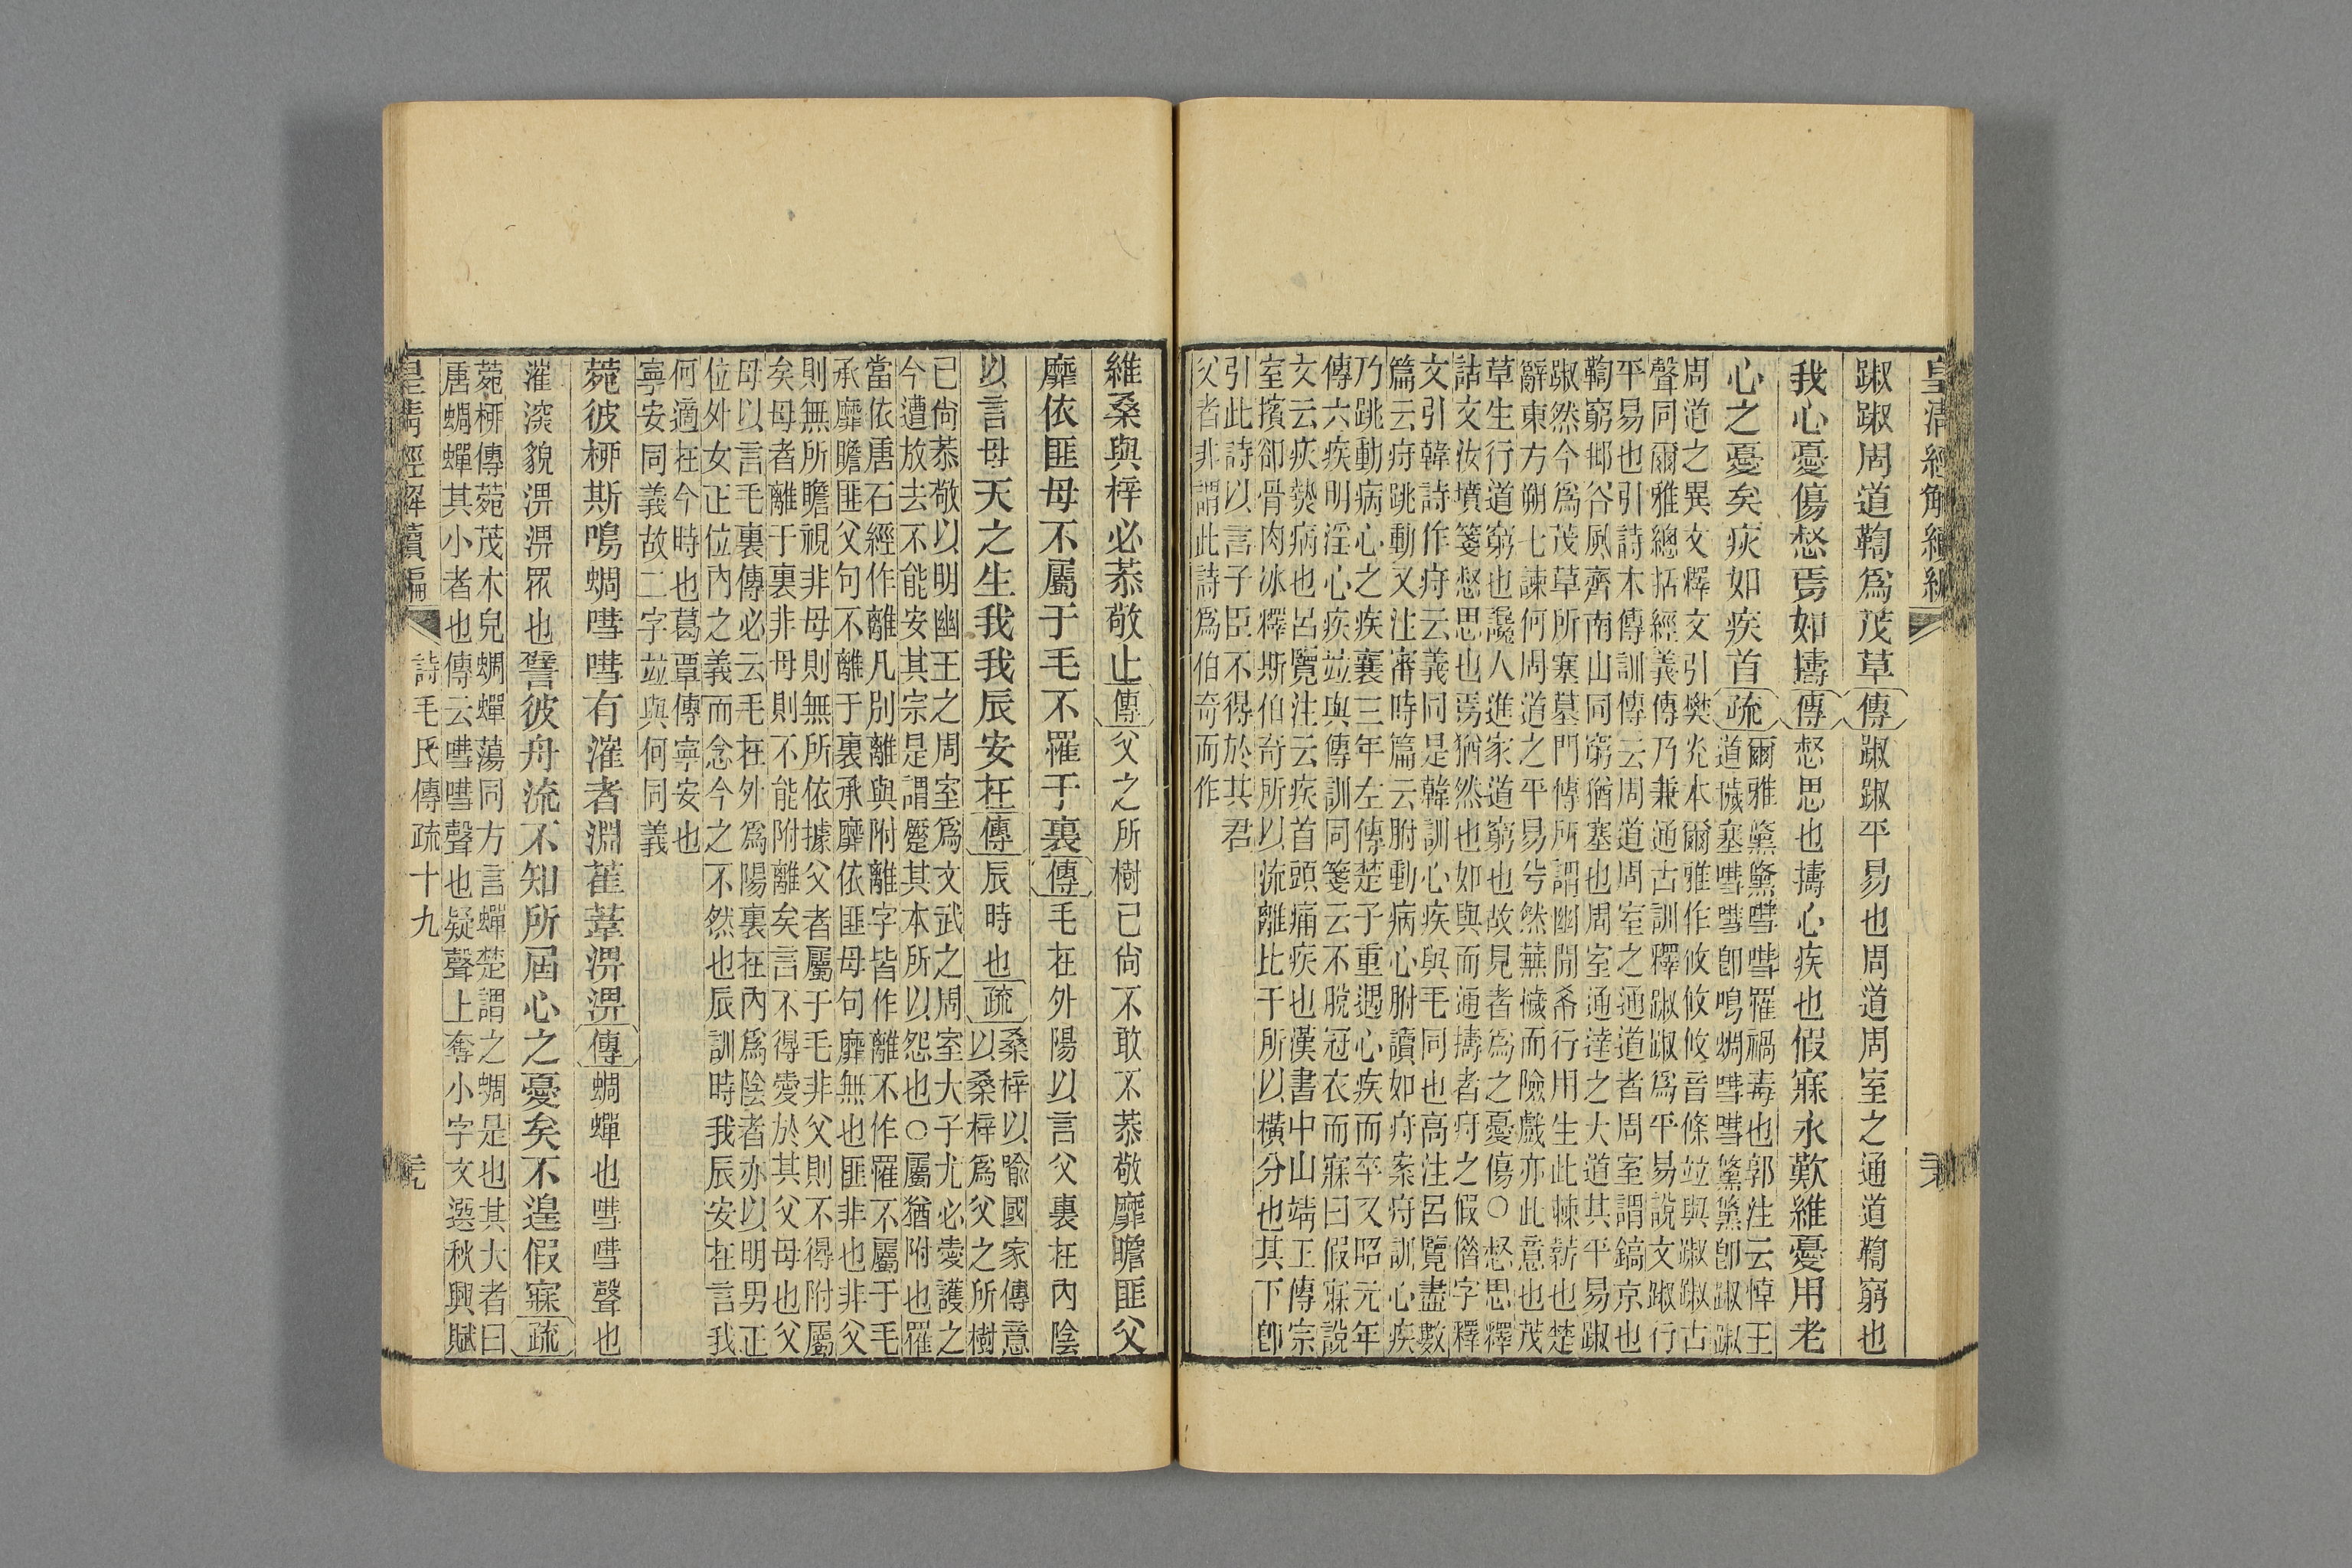 皇清經解續編
踧踧周道鞫爲茂草傳踧踧平易也周道周室之通道鞫窮也
我心憂傷惄焉如擣傳惄思也擣心疾也假寐永歎維憂用老
心之憂矣疢如疾首疏
爾雅儵儵嘒嘒罹禍毒也郭注云悼王
道穢塞嘒嘒卽鳴蜩嘒嘒儵儵卽踧踧
周道之異文釋文引樊光本爾雅作攸攸音條竝與踧踧古
聲同爾雅總括經義傳乃兼通古訓釋踧踧爲平易說文踧行
平易也引詩木傳訓傳云周道周室之通道者周室謂鎬京也
鞫窮邶谷風齊南山同窮猶塞也周室通達之大道其平易踧
踧然今爲茂草所塞墓門傳所謂幽閒希行用生此棘薪也楚
辭東方朔七諫何周道之平易兮然蕪穢而險戲亦此意也茂
草生行道窮也讒人進家道窮也故見者爲之憂傷○惄思釋
詁文汝墳箋惄思也焉猶然也如與而通擣者疛之假借字釋
文引韓詩作疛云義同是韓訓心疾與毛同也高注呂覽盡數
篇云疛跳動又注審時篇云胕動病心胕讀如疛案疛訓心疾
乃跳動病心之疾襄三年左傳楚子重遇心疾而卒又昭元年
傳六疾明淫心疾竝與傳訓同箋云不脫冠衣而寐曰假寐說
文云疢熱病也呂覽注云疾首頭痛疾也漢書中山靖王傳宗
室擯卻骨肉冰釋斯伯奇所以流離比干所以橫分也其下卽
引此詩以言子臣不得於其君
父者非謂此詩爲伯奇而作
維桑與梓必恭敬止傳父之所樹已尙不敢不恭敬靡瞻匪父
靡依匪母不屬于毛不罹于裏傳毛在外陽以言父裏在內陰
以言母天之生我我辰安在傳辰時也疏
桑梓以喩國家傳意
以桑梓爲父之所樹
已尙恭敬以明幽王之周室爲文武之周室大子尤必愛護之
今遭放去不能安其宗是謂蹙其本所以怨也○屬猶附也罹
當依唐石經作離凡別離與附離字皆作離不作罹不屬于毛
承靡瞻匪父句不離于裏承靡依匪母句靡無也匪非也非父
則無所瞻視非母則無所依據父者屬于毛非父則不得附屬
矣母者離于裏非母則不能附離矣言不得愛於其父母也父
母以言毛裏傳必云毛在外爲陽裏在內爲陰者亦以明男正
位外女正位內之義而念今之不然也辰訓時我辰安在言我
何適在今時也葛覃傳寧安也
寧安同義故二字竝與何同義
菀彼柳斯鳴蜩嘒嘒有漼者淵萑葦淠淠傳蜩蟬也嘒嘒聲也
漼深貌淠淠眾也譬彼舟流不知所屆心之憂矣不遑假寐疏
菀柳傳菀茂木皃蜩蟬蕩同方言蟬楚謂之蜩是也其大者曰
唐蜩蟬其小者也傳云嘒嘒聲也疑聲上奪小字文選秋興賦
皇清經解續編
詩毛氏傳疏十九